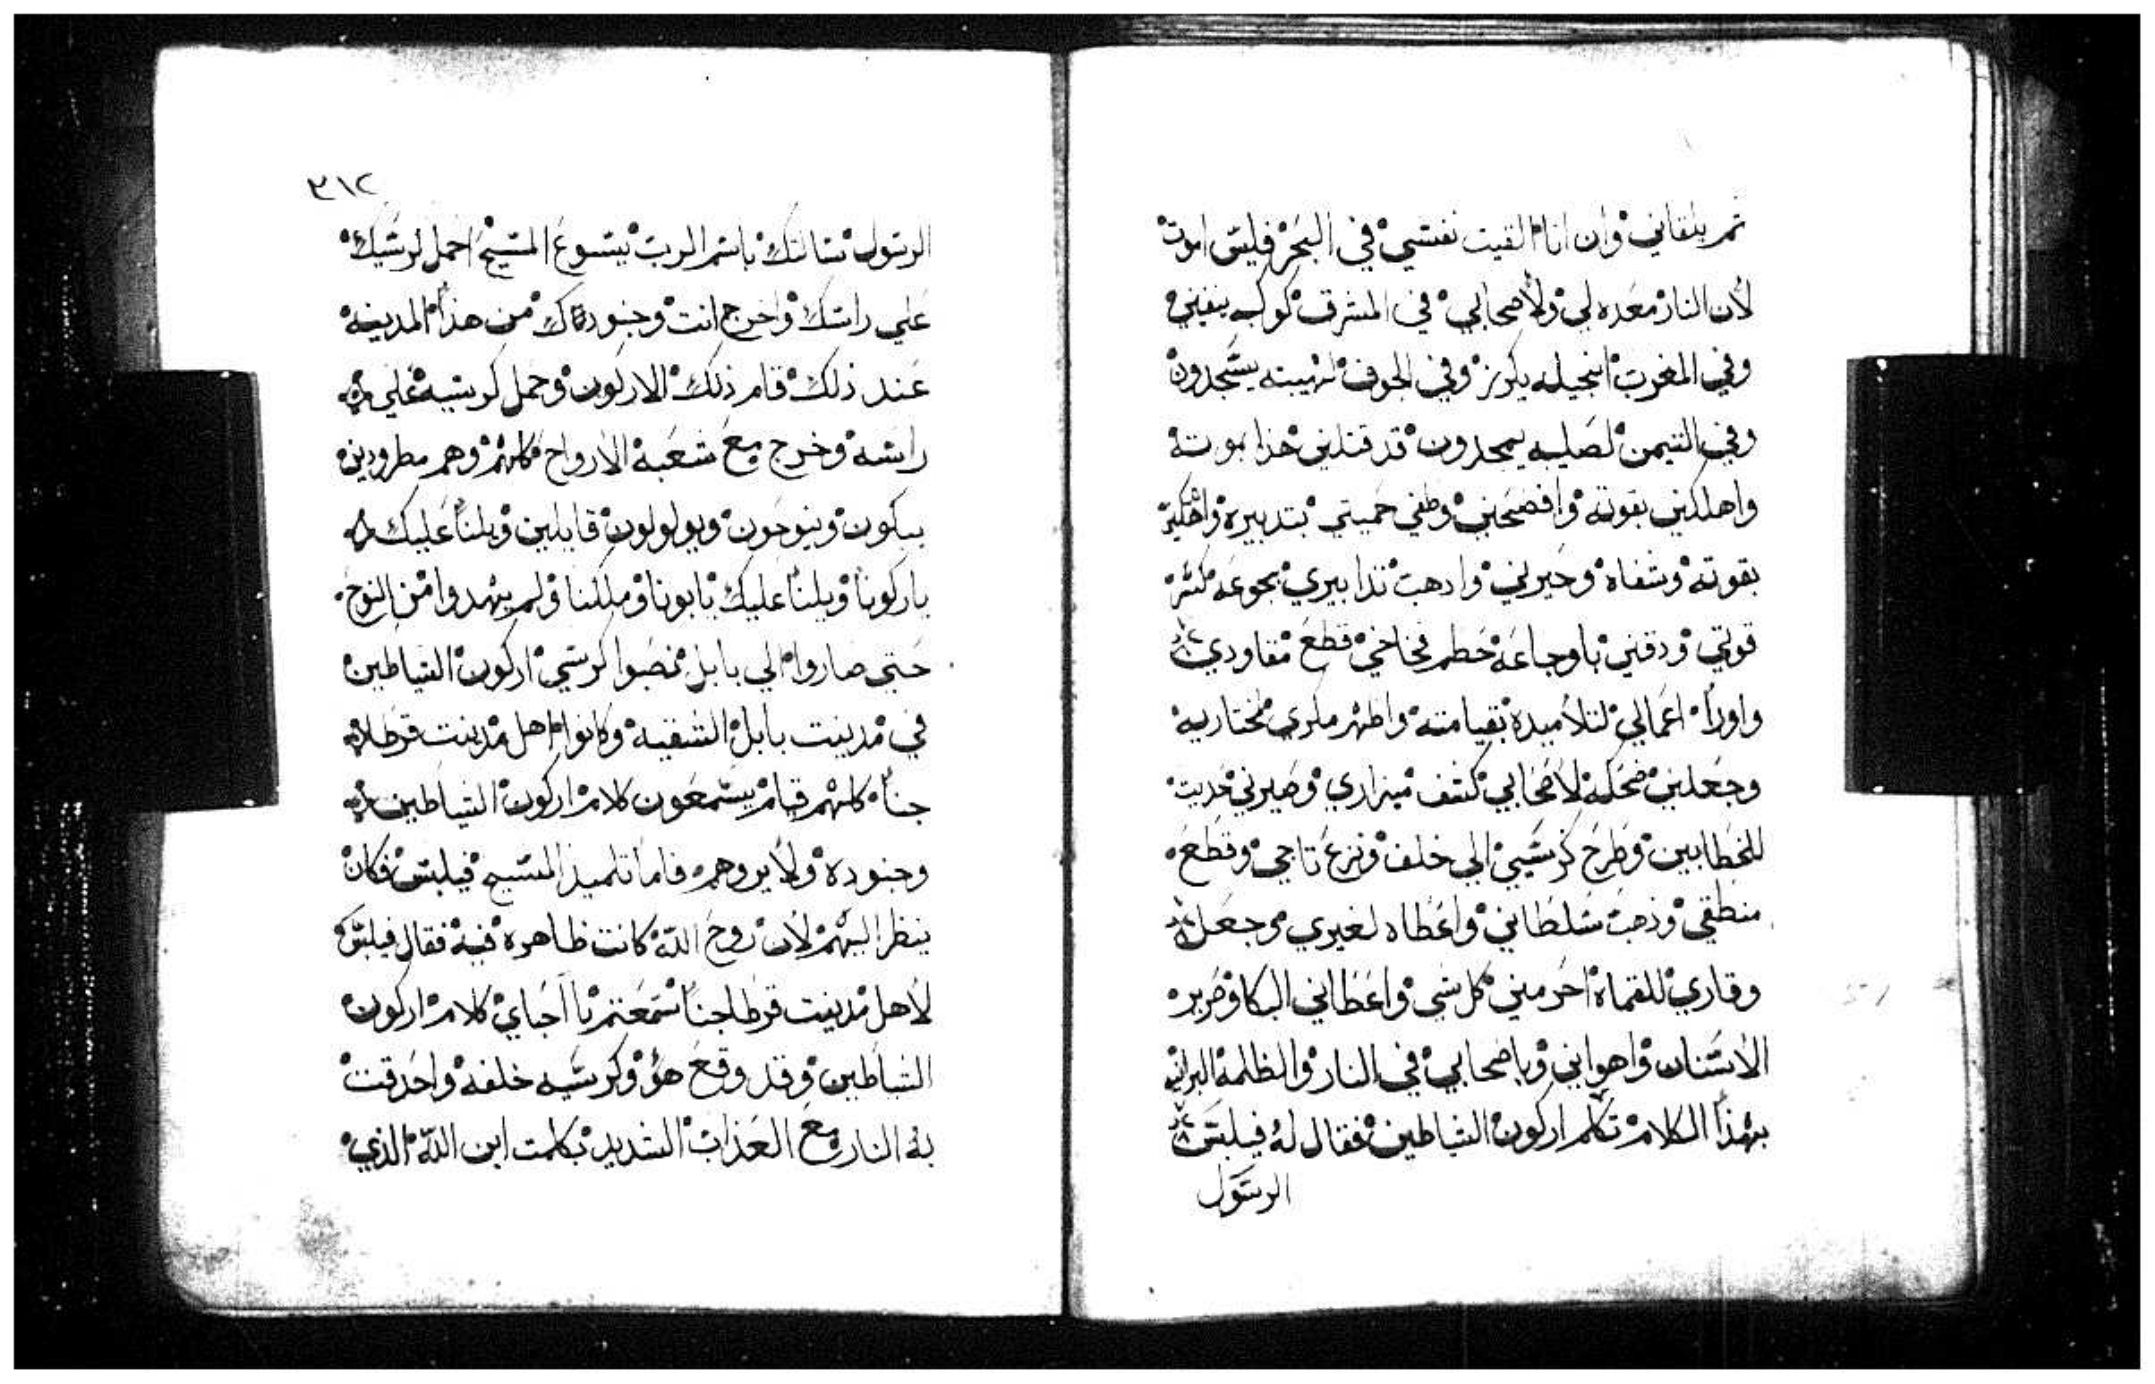 ثم يلقاني وان انا القيت نفسي في البحر فليس اموت
لأن النار معده لي ولأصحابي في المشرق كوكبه ينفيني
وفي المغرب انجيله يكرز وفي الجوف لهيبته يسجدون
وفي التيمن لصليبه يمجدون قد قتلني هذا بموته
واهلكني بقوته وافضحني وطفي حميتي بتدبيره
بقوته وشفاه وحيرني وادهب تدابيري بجوعه كسر
قوتي ودقني باوجاعه حطم فخاخي قطع مقاودي
واورا اعمالي لتلاميده بقيامته واظهر مكري لمختاريه
وجعلني ضحكه لأصحابي كشف ميزاري وصيرني حديت
للخطايين وطرح كرسيي الي خلف ونزع تاجي وقطع
منطقي وذهب سلطاني واعطاه لغيري وجعل
وقاري للقماه احرمني كل شي واعطاني البكا وصرير
الأسنان واهواني وياصحابي في النار والظلمة البرانيه
بهذا الكلام تكلم اركون الشياطين فقال له فيلبس
الرسول
٣١٢
الرسول نسالك باسم الرب يسوع المسيح احمل كرسيك
علي راسك واخرج انت وجنودك من هذا المدينه
عند ذلك قام ذلك الاركون وحمل كرسيه علي
راسه وخرج مع شعبه الارواح كلهم وهم مطرودين
يبكون وينوحون ويولولون قايلين ويلنا عليك
ياركونا ويلنا عليك يابونا وملكنا ولم يهدوا من النوح
حتي صاروا الي بابل نصبوا كرسي اركون الشياطين
في مدينت بابل الشقيه وكانوا اهل مدينت قرطلا
جنا كلهم قيام يسمعون كلام اركون الشياطين
وجنوده ولأيروهم فاما تلميذ المسيح فيلبس فكان
ينظر اليهم لأن روح الله كانت ظاهره فيه فقال فيلبس
لأهل مدينت قرطاجنا اسمعتم يا احباي كلام اركون
الشياطين وقد وقع هو وكرسيه خلفه واحدقت
به النار مع العذاب الشديد بكلمت ابن الله الذي